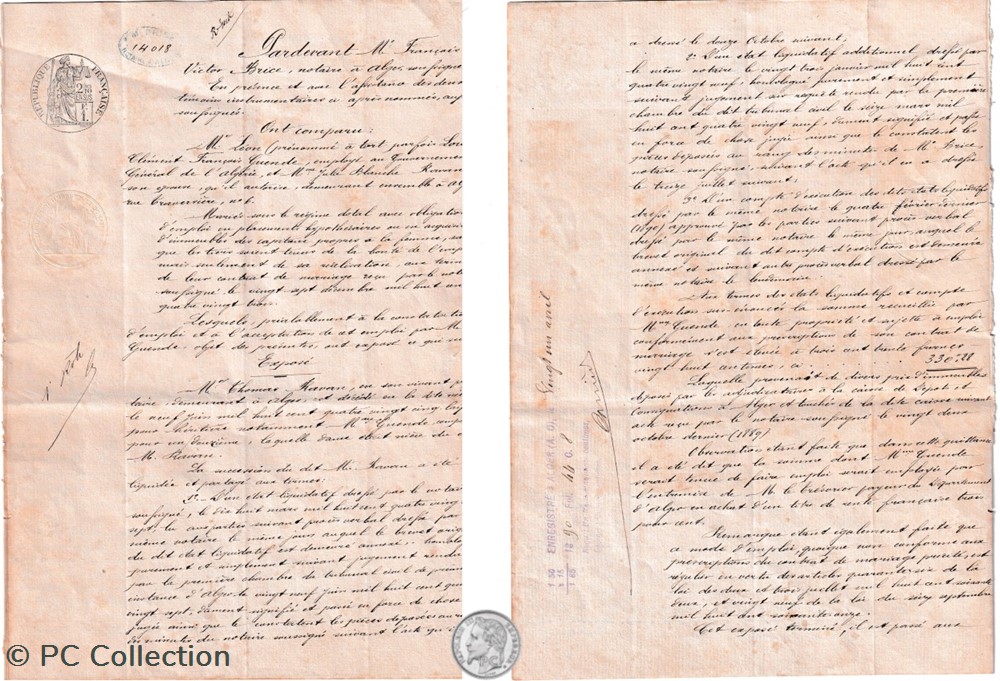 14018
RÉPUBLIQUE FRANÇAISE
Pardevant Me François
Victor Brice, notaire à Alger, soussigné
En présence et avec l'assistance des deux
témoins instrumentaires ci après nommés, aussi
soussignés
Ont comparu:
Mr Léon (prénommé à tort parfois Louis
Clément François Guende, employé au Gouvernement
Général de l'Algérie, et Mme Julie Blanche Ravan
son épouse, qu'il autorise, demeurant ensemble à
rue no 6.
Mariés sous le régime dotal avec obligation
d'emploi en placements hypothécaires ou en
d'immeubles des capitaux propres à la femme, sans
que les tiers soient tenus de la bonté de
mais seulement de sa réalisation aux termes
de leur contrat de mariage reçu par le
soussigné le vingt sept décembre mil huit cent
quatre vingt trois.
Lesquels, préalablement à la constatation
d'emploi et à l'acceptation de cet emploi par Mme
Guende, objet des présentes, ont exposé ce qui
Exposé
Mr Thomas Ravan, en son vivant
demeurant à Alger, est décédé en la dite
le neuf juin mil huit cent quatre vingt cinq
pour héritière notamment Mme Guende,
pour un douzième, laquelle dame était nièce de
M. Ravan.
La succession du dit Mr. Ravan a été
liquidée et partagée aux termes:
1o D'un état liquidatif dressé par le
soussigné, le dix huit mars mil huit cent quatre vingt
sept, lu aux parties suivant procès verbal dressé par
même notaire le même jour, auquel le brevet
du dit état liquidatif est demeuré annexé
purement et simplement suivant jugement
par la première chambre du tribunal civil de première
instance d'Alger le vingt neuf juin mil huit cent quatre
vingt sept, dûment signifié et passé en force de chose
jugée ainsi que le constatent les pièces déposées au
des minutes du notaire soussigné suivant l'acte qu'il
a dressé le douze Octobre suivant,
2o D'un état liquidatif additionnel, dressé par
le même notaire le vingt trois janvier mil huit cent
quatre vingt neuf, homologué purement et simplement
suivant jugement sur requête rendu par la première
chambre du dit tribunal civil le seize mars mil
huit cent quatre vingt neuf, dûment signifié et passé
en force de chose jugée ainsi que le constatent les
pièces déposées au rang des minutes de Me Brice
notaire soussigné, suivant l'acte qu'il en a dressé
le treize juillet suivant;
3o D'un compte d'exécution des dits états liquidatifs
dressé par le même notaire le quatre février dernier
(1890) approuvé par les parties suivant procès-verbal
dressé par le même notaire le même jour, auquel le
brevet original du dit compte d'exécution est demeuré
annexé et suivant autre procès verbal dressé par le
même notaire le
Aux termes des états liquidatifs et compte
d'exécution sus énoncés la somme recueillie par
Mme Guende, en toute propriété et sujette à emploi
conformément aux prescriptions de son contrat de
mariage s'est élevée à trois cent trente francs
vingt huit centimes, ci . . . 330.28
Laquelle provenait de divers prix d'immeubles
déposés par les adjudicataires à la caisse des Dépôts et
Consignations à Alger et touchés de la dite caisse suivant
acte reçu par le notaire soussigné le vingt deux
octobre dernier (1889)
Observation étant faite que dans cette quittance
il a été dit que la somme dont Mme Guende
serait tenue de faire emploi serait employée par
l'entremise de M. le Trésorier payeur du Département
d'Alger en achat d'un titre de rente française trois
pour cent.
Remarque étant également faite que
ce mode d'emploi, quoique non conforme aux
prescriptions du contrat de mariage précité, est
régulier en vertu des articles quarante six de la
loi des deux et trois juillet mil huit cent soixante
deux, et vingt neuf de la loi du seize septembre
mil huit cent soixante onze.
Cet exposé terminé, il est passé aux
ENREGISTRÉ A ALGER (A. C.) LE Vingt un avril
18 90 Fol. 44 C. 8
© PC Collection